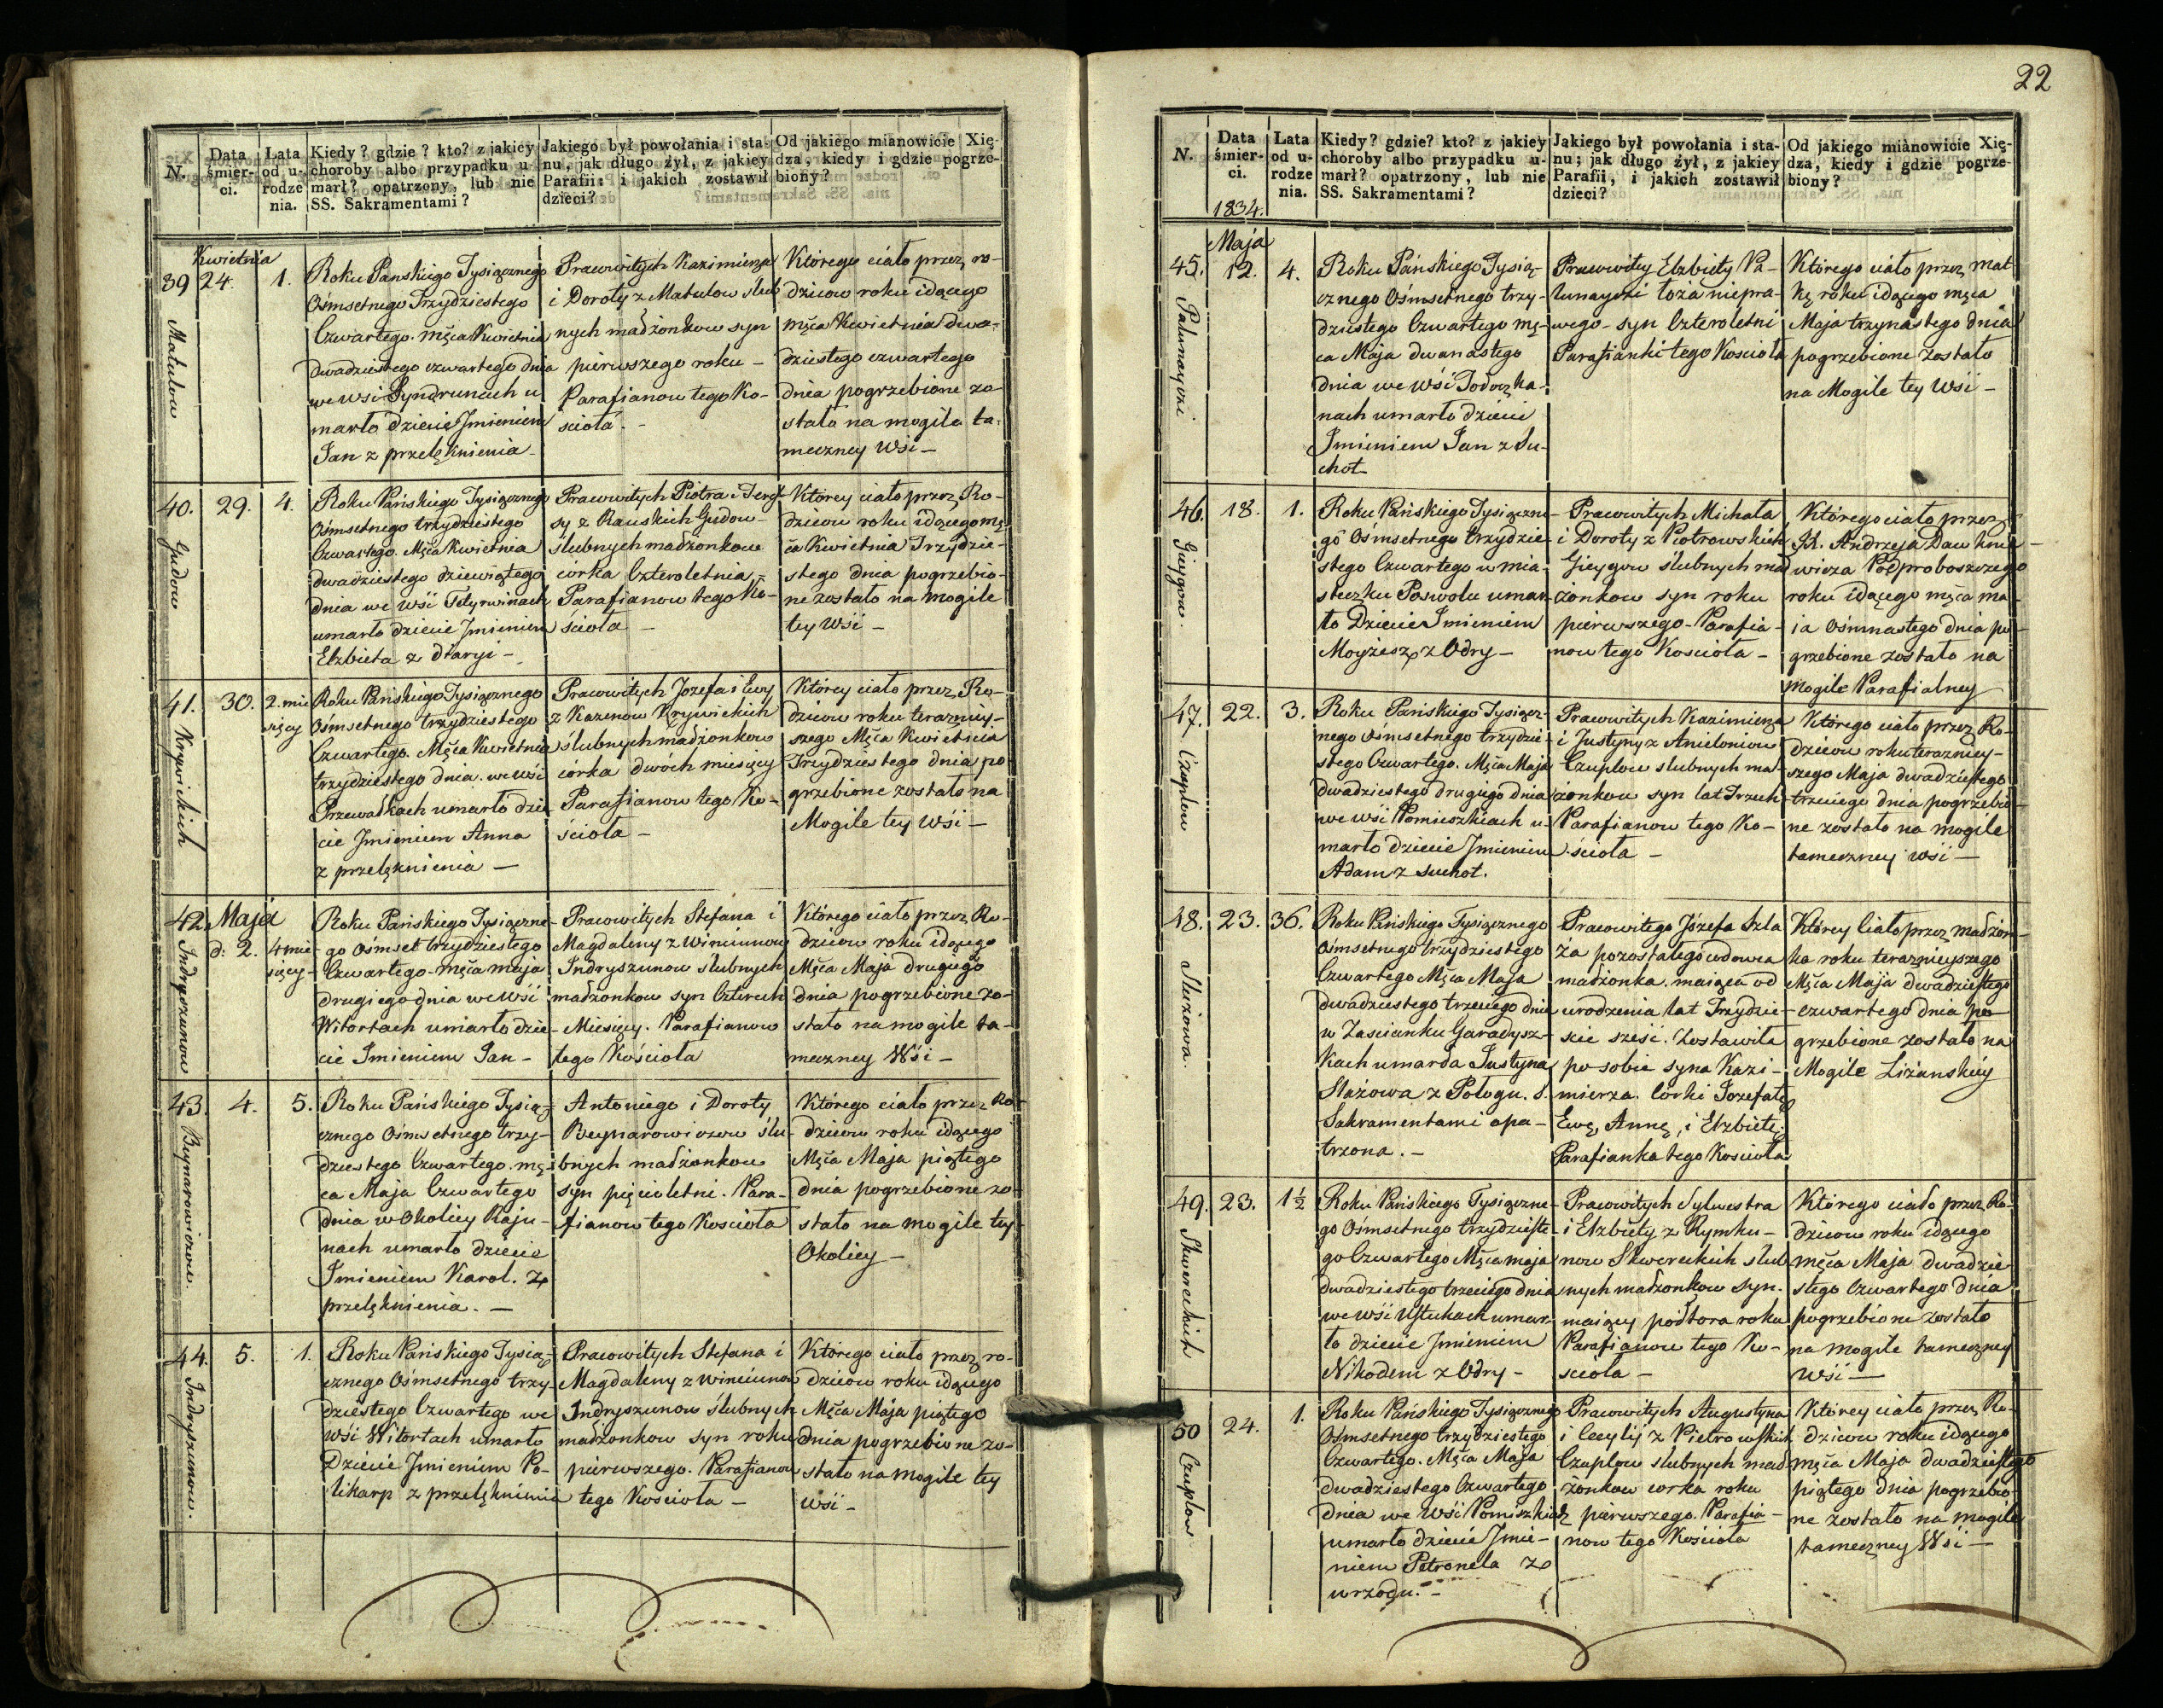 N.
Data śmier- ci.
Lata od u- rodze nia.
Kiedy? gdzie? kto? z jakiey
choroby albo przypadku u-
marł? opatrzony, lub nie
SS. Sakramentami?
Jakiego był powołania i sta-
nu, jak długo żył, z jakiey
Parafii: i jakich zostawił
dzieci?
Od jakiego mianowicie Xię-
dza, kiedy i gdzie pogrze-
biony?
Kwietnia
39 24. 1.
Matulow
Roku Panskiego Tysiącznego
Ośmsetnego Trzydziestego
Czwartego. mşca Kwietnia
dwadziestego czwartego dnia
we wsi Gyndrunach u
marło dziecie Jmieniem
Jan z przelęknienia
Pracowitych Kazimierza
i Doroty z Matulow slub
nych madżonkow syn
pierwszego roku –
Parafianow tego Ko-
sciola. -
Którego ciało przez ro-
dzicow roku idącego
mşca Kwietnia dwa-
dziestego czwartego
dnia pogrzebione zo-
stało na mogile ta-
meczney Wśi –
40. 29. 4.
Gudow
Roku Pańskiego Tysiącznego
Ośmsetnego trzydziestego
Czwartego. Mşca Kwietnia
dwadziestego dziewiątego
dnia we wśi Tetyrwinach
umarło dziecie Jmieniem
Elzbieta z dîaryi –
Pracowitych Piotra i Tere
sy z Rauskich Gudow
ślubnych madżonkow
córka Czteroletnia –
Parafianow tego Ko-
ścioła –
Którey ciało przez Ro-
dzicow roku idącego mş
ca Kwietnia Trzydzie-
stego dnia pogrzebio-
ne zostało na mogile
tey Wśi –
41. 30. 2. mie sięcy
Krywickich
Roku Pańskiego Tysiącznego
Ośmsetnego trzydziestego
Czwartego. Mşca Kwietnia
trzydziestego dnia. we wśi
Przewałkach umarło dzie
cie Jmieniem Anna
z przelęknienia –
Pracowitych Jozefa i Ewy
z Kazenow Krywickich
ślubnych madżonkow
córka dwóch miesięcy
Parafianow tego Ko-
ścioła –
Którey ciało przez Ro-
dzicow roku terazniey-
szego Mşca Kwietnia
Trzydziestego dnia po
grzebione zostało na
Mogile tey Wśi –
42. Maja
d: 2. 4 mie sięcy –
Indryszunow
Roku Pańskiego Tysiączne-
go Ośmset trzydziestego
Czwartego – mşca maja
drugiego dnia we Wśi
Witortach umarło dzie-
cie Jmieniem Jan –
Pracowitych Stefana i
Magdaleny z Winciunow
Indryszunow ślubnych
madżonkow syn Czterech
Miesięcy. Parafianow
tego Kościoła
Którego ciało przez Ro-
dzicow roku idącego
Mşca Maja drugiego
dnia pogrzebione zo-
stało na mogile ta-
meczney Wśi –
43. 4. 5.
Beynarowiczow.
Roku Pańskiego Tysią-
cznego Ośmsetnego trzy-
dziestego Czwartego. mş-
ca Maja Czwartego
dnia w Okolicy Raju-
nach umarło dziecie
Jmieniem Karol. z
przelęknienia. –
Antoniego i Doroty
Beynarowiczow ślu-
bnych madżonkow
syn pięcioletni. Para-
fianow tego Kościoła
Którego ciało przez Ro-
dzicow roku idącego
Mşca Maja piątego
dnia pogrzebione zo-
stało na mogile tey
Okolicy –
44. 5. 1.
Indryszunow.
Roku Pańskiego Tysią-
cznego Ośmsetnego trzy-
dziestego Czwartego we
wśi Witortach umarło
Dziecie Jmieniem Po-
likarp z przelęknienia
Pracowitych Stefana i
Magdaleny z Winciunow
Indryszunow ślubnych
madżonkow syn roku
pierwszego. Parafianow
tego Kościoła –
Którego ciało przez ro-
dzicow roku idącego
Mşca Maja piątego
dnia pogrzebione zo-
stało na mogile tey
wśi –
22
N.
Data śmier- ci.
1834.
Lata od u- rodze nia.
Kiedy? gdzie? kto? z jakiey
choroby albo przypadku u-
marł? opatrzony, lub nie
SS. Sakramentami?
Jakiego był powołania i sta-
nu; jak długo żył, z jakiey
Parafii, i jakich zostawił
dzieci?
Od jakiego mianowicie Xię-
dza, kiedy i gdzie pogrze-
biony?
Maja
45. 12. 4.
Palunayzki.
Roku Pańskiego Tysią-
cznego Ośmsetnego trzy-
dziestego Czwartego mş-
ca Maja dwanastego
dnia we wśi Jodoczka-
nach umarło dzieci
Jmieniem Jan z Su-
chot
Pracowitey Elzbiety Pa-
lunayzki łoża niepra-
wego – syn Czteroletni
Parafianki tego Kościoła
Którego ciało przez mat-
kę roku idącego mşca
Maja trzynastego dnia
pogrzebione zostało
na Mogile tey Wśi –
46. 18. 1.
Gieygow.
Roku Pańskiego Tysiączne-
go Ośmsetnego trzydzie-
stego Czwartego w mia-
steczku Poswolu umar-
ło Dziecie Jmieniem
Moyżesz z Odry –
Pracowitych Michała
i Doroty z Piotrowskich
Gieygow ślubnych mad
żonkow syn roku
pierwszego – Parafia-
now tego Kościoła –
Którego ciało przez
JX. Andrzeja Daukne-
wicza Podproboszczego
roku idącego mşca ma-
ia Ośmnastego dnia po-
grzebione zostało na
Mogile Parafialney
47. 22. 3.
Czuplow
Roku Pańskiego Tysiącz-
nego Ośmsetnego trzydzie-
stego Czwartego. Mşca Maja
dwadziestego drugiego dnia
we wśi Pomieszkiach u-
marło dziecie Jmieniem
Adam z Suchot.
Pracowitych Kazimierza
i Justyny z Anielonow
Czuplow ślubnych mad-
żonkow syn lat Trzech
Parafianow tego Ko-
ścioła –
Którego ciało przez Ro-
dzicow roku terazniey-
szego Maja dwadziestego
trzeciego dnia pogrzebio-
ne zostało na mogile
tameczney wśi –
48. 23. 36.
Slażowa.
Roku Pańskiego Tysiącznego
Ośmsetnego trzydziestego
Czwartego Mşca Maja
dwadziestego trzeciego dnia
w Zascianku Garadysz-
kach umarła Justyna
Slażowa z Połogu. S.
Sakramentami opa-
trzona. –
Pracowitego Józefa Szla
ża pozostałego wdowca
małżonka. maiąca od
urodzenia lat Trzydzie-
ście sześć. Zostawiła
po sobie syna Kazi-
mierza. Córki Jozefatę
Ewę, Annę, i Elzbietę.
Parafianka tego Kościoła
Którey Ciało przez madżon-
ka roku teraznieyszego
Mşca Maija dwadziestego
czwartego dnia po
grzebione zostało na
Mogile Liżanskiey
49. 23. 1½
Skworeckich
Roku Pańskiego Tysiączne-
go Ośmsetnego trzydzieste-
go Czwartego Mşca maja
dwadziestego trzeciego dnia
we wśi Ustukach umar-
ło dziecie Jmieniem
Nikodem z Odry –
Pracowitych Sylwestra
i Elzbiety z Rymku-
now Skworeckich ślub
nych madżonkow syn.
maiący półtora roku
Parafianow tego Ko-
ścioła –
Którego ciało przez Ro-
dzicow roku idącego
mşca Maja dwadzie
stego Czwartego dnia
pogrzebione zostało
na mogile tameczney
Wśi –
50 24. 1.
Czuplow
Roku Pańskiego Tysiącznego
Ośmsetnego trzydziestego
Czwartego. Mşca Maja
dwadziestego Czwartego
dnia we Wśi Pomiszkiach
umarło dziecie Jmie-
niem Petronela z
wrzodu. –
Pracowitych Augustyna
i Cecylij z Pietrowskich
Czuplow ślubnych mad
żonkow corka roku
pierwszego. Parafia-
now tego Kościoła
Którey ciało przez Ro-
dzicow roku idącego
mşca Maja dwadziestego
piątego dnia pogrzebio-
ne zostało na mogile
tameczney Wśi –